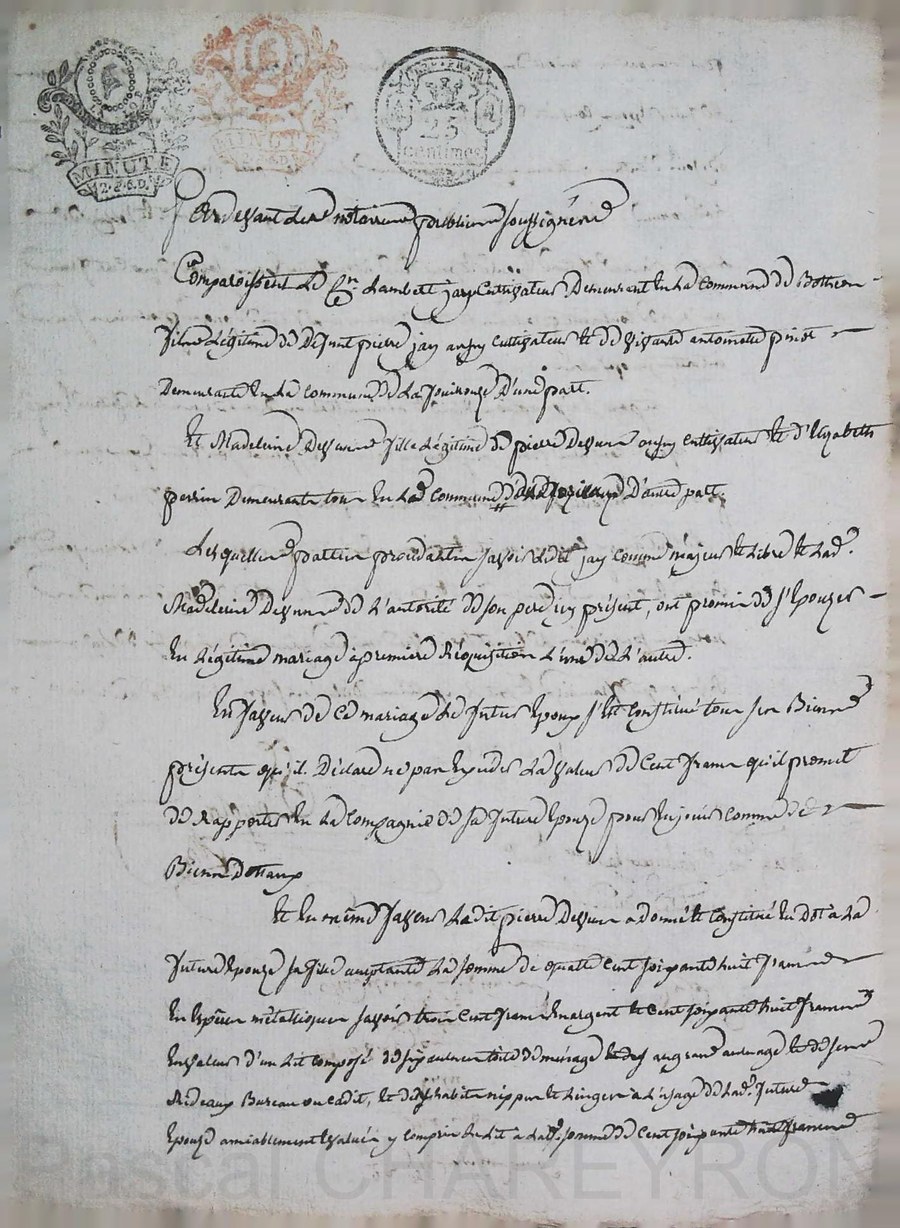 MINUTE
2.8.6.D.
MINUTE
2.8.6.D.
25
centimes
Pardevant les notaires publics soussignés
Comparoissent le Cn. Lambert jay Cultivateur Demeurant en La Commune de
fils Légitime de Defunt pierre jay cultivateur et de vivante antoinette pinot
Demeurante en La Commune de La D'une part.
Et Madeleine fille Légitime de pierre cultivateur et d'Elizabeth
perrin Demeurants tous en Lad. Commune D'autre part.
Lesquelles parties procedantes savoir Ledit jay comme majeur et Libre et Lad.
Madeleine de L'autorité de son pere icy présent, ont promis de s'Epouzer
En Légitime mariage à premiere Réquisition L'une de L'autre.
En faveur de Ce mariage Le futur Epoux s'Est Constitué tous ses Biens
présents qu'il Déclare ne pas Exceder La valeur de Cent francs qu'il promet
de Rapporter En La Compagnie de sa future Epouze pour En jouir comme de
Biens Dottaux
Et En même faveur Ledit pierre a donné et Constitué En Dot à La
future Epouze sa fille acceptante La somme de quatre Cent soixante huit francs
En Espèces métalliques savoir trois Cent francs En argent et Cent soixante huit francs
En valeur d'un Lit Composé de six aulnes toile de ménage et de ses
Rideaux Bureau ou Cadit, et des habits nippes et Linges à L'usage de Lad. future
Epouze amiablement Evalués y compris Le Lit à Lad. somme de Cent soixante huit francs
Pascal CHAREYRON